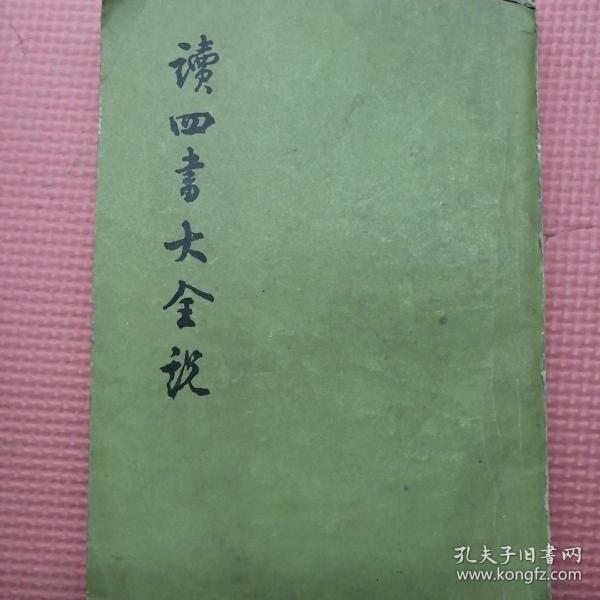 讀四書大全說
孔夫子旧书网
www.kongfz.com